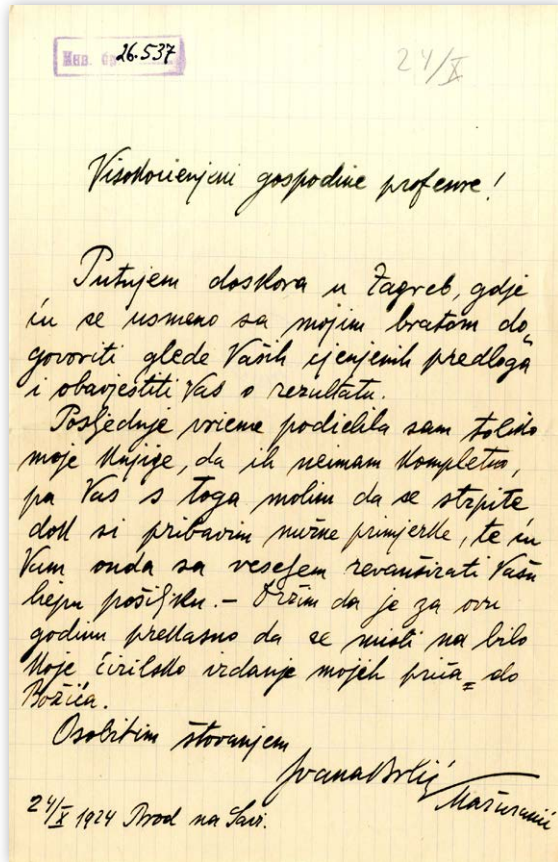 Инв. бр. 26.537
24/X
Visokocienjeni gospodine profesore!
Putujem doskora u Zagreb, gdje
ću se usmeno sa mojim bratom do
govoriti glede Vaših cjenjenih predloga
i obavjestiti Vas o rezultatu.
Posljednje vrieme podielila sam toliko
moje knjige, da ih neimam kompletno,
pa Vas s toga molim da se strpite
dok si pribavim nužne primjerke, te ću
Vam onda sa veseljem revanširati Vašu
liepu pošiljku. – Držim da je za ovu
godinu prekasno da se misli na bilo
koje ćirilsko izdanje mojih priča = do
Božića.
Osobitim štovanjem
Ivana Brlić
Mažuranić
24/X 1924 Brod na Savi.